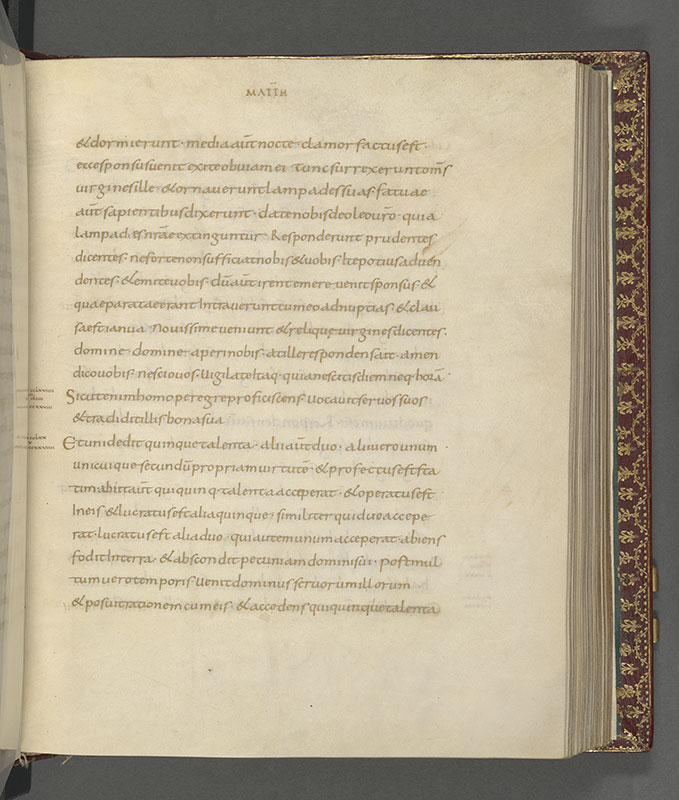 MATTH
& dormierunt · media aūt nocte clamor factus est ·
ecce sponsus uenit exite obuiam ei tunc surrexerunt om̄s
uirgines ille & ornauerunt lampades suas · fatuae
aūt sapientibus dixerunt · date nobis de oleo ur̄o · quia
lampades nr̄ae extinguntur · Responderunt prudentes
dicentes · ne forte non sufficiat nobis & uobis · Ite potius ad uen
dentes · & emite uobis · dū aūt irent emere · uenit sponsus · &
quae paratae erant Intrauerunt cum eo ad nuptias · & clau
sa est ianua · Nouissime ueniunt & relique uirgines dicentes ·
domine · domine · aperi nobis · at ille respondens ait · amen
dico uobis · nescio uos · Uigilate Itaq · quia nescitis diem neq · horā ·
Sicut enim homo peregre proficiscens · uocauit seruos suos
& tradidit illis bona sua
Et uni dedit quinque talenta · alii aūt duo · alii uero unum
unicuique secundū propriam uirtutē · & profectus est sta
tim abiit aūt qui quinq · talenta acceperat · & operatus est
In eis & lucratus est alia quinque · similiter qui duo accepe
rat · lucratus est alia duo · qui autem unum acceperat · abiens
fodit In terra · & abscondit pecuniam domini sui · post mul
tum uero temporis · uenit dominus seruorum illorum
& posuit rationem cum eis · & accedens qui quinque talenta